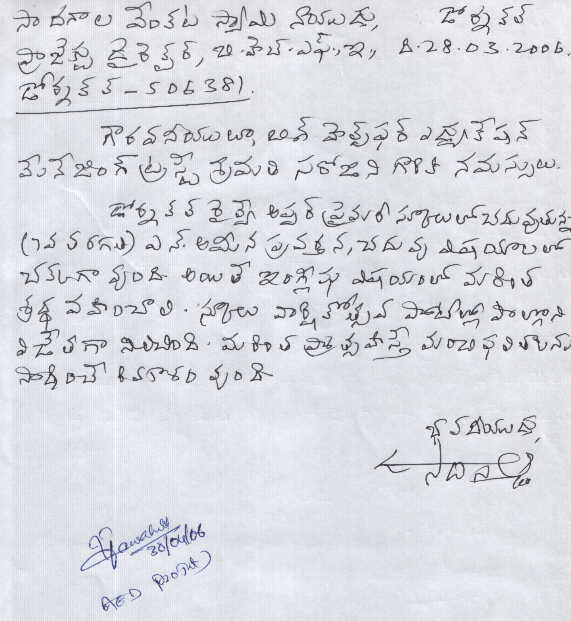 సాదగాల వెంకట స్వామి నాయుడు, డోర్నకల్
ప్రాజెక్టు డైరెక్టర్, బి.హెచ్.ఎఫ్.ఇ, ది.28.03.2006.
డోర్నకల్ - 506381.
గౌరవనీయులూ, బిగ్ హెల్ప్ ఫర్ ఎడ్యుకేషన్
మేనేజింగ్ ట్రస్టీ శ్రీమతి సరోజిని గారికి నమస్సులు.
డోర్నకల్ రైల్వే అప్పర్ ప్రైమరీ స్కూలులో చదువుతున్న
(7వ తరగతి) ఎన్. అమీన ప్రవర్తన, చదువు విషయాలలో
చక్కగా వుంది. అయితే ఇంగ్లీషు విషయంలో మరింత
శ్రద్ధ వహించాలి. స్కూలు వార్షికోత్సవ పోటీల్లో పాల్గొని
విజేతగా నిలిచింది. మరింత ప్రోత్సహిస్తే మంచి ఫలితాలను
సాధించే అవకాశం వుంది
భవదీయుడు,
30/04/06